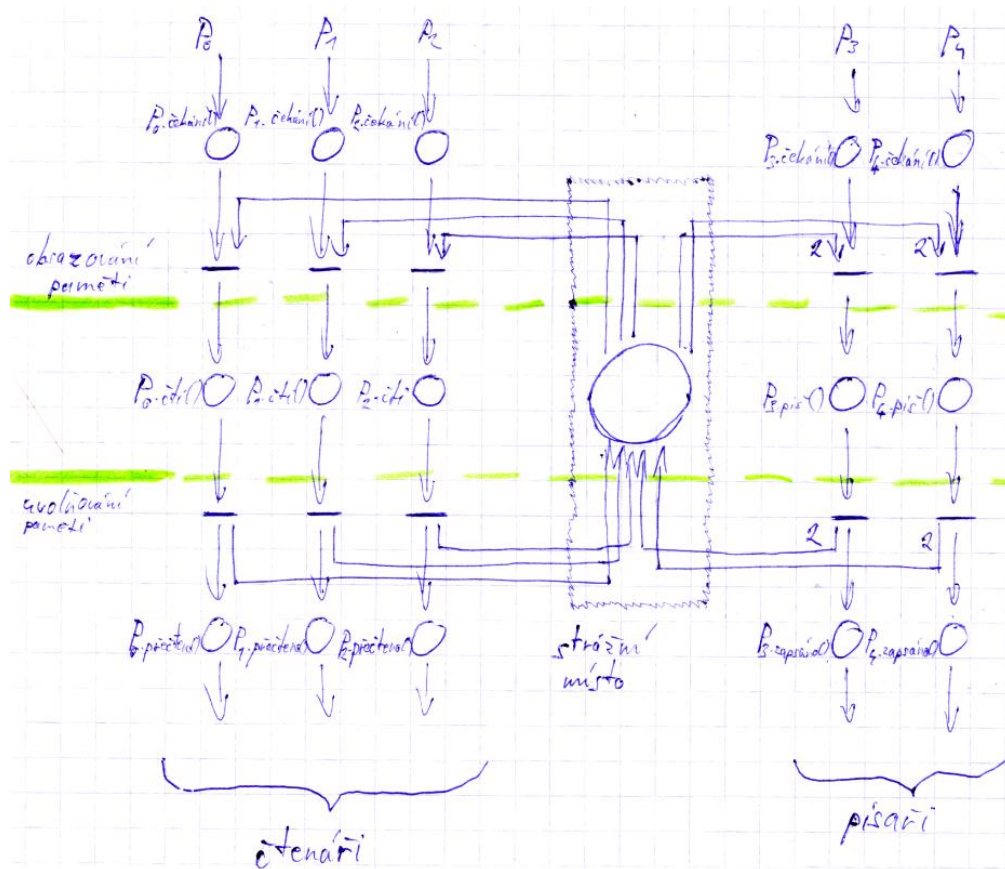 P0 P1 P2 P3 P4
P0.čekání() P1.čekání() P2.čekání()
P3.čekání() P4.čekání()
2 2
obsazování
paměti
P0.čti() P1.čti() P2.čti P3.piš() P4.piš()
uvolňování
paměti
2 2
P0.přečteno() P1.přečteno() P2.přečteno() P3.zapsáno() P4.zapsáno()
strážní
místo
čtenáři
písaři